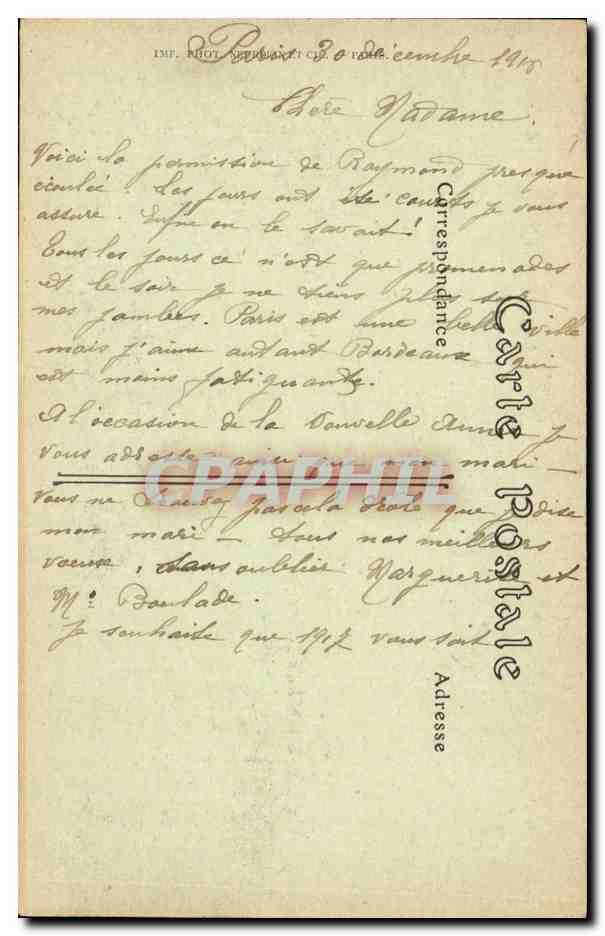 IMP. PHOT. NEURDEIN ET CIE. PARIS.
Paris 30 décembre 191
Chère Madame.
Voici la permission de Raymond presque
écoulée. Les jours ont été courts je vous
assure. Enfin on le savait!
Tous les jours ce n'est que promenades
et le soir je ne tiens plus sur
mes jambes. Paris est une belle ville
mais j'aime autant Bordeaux qui
est moins fatiguante.
A l'occasion de la Nouvelle Année je
vous adresse ainsi que mon mari –
vous ne trouvez pas cela drôle que je dise
mon mari – tous nos meilleurs
voeux, sans oublier Marguerite et
Mr Boulade.
Je souhaite que 1917 vous soit
Correspondance
Carte Postale
Adresse
CPAPHIL